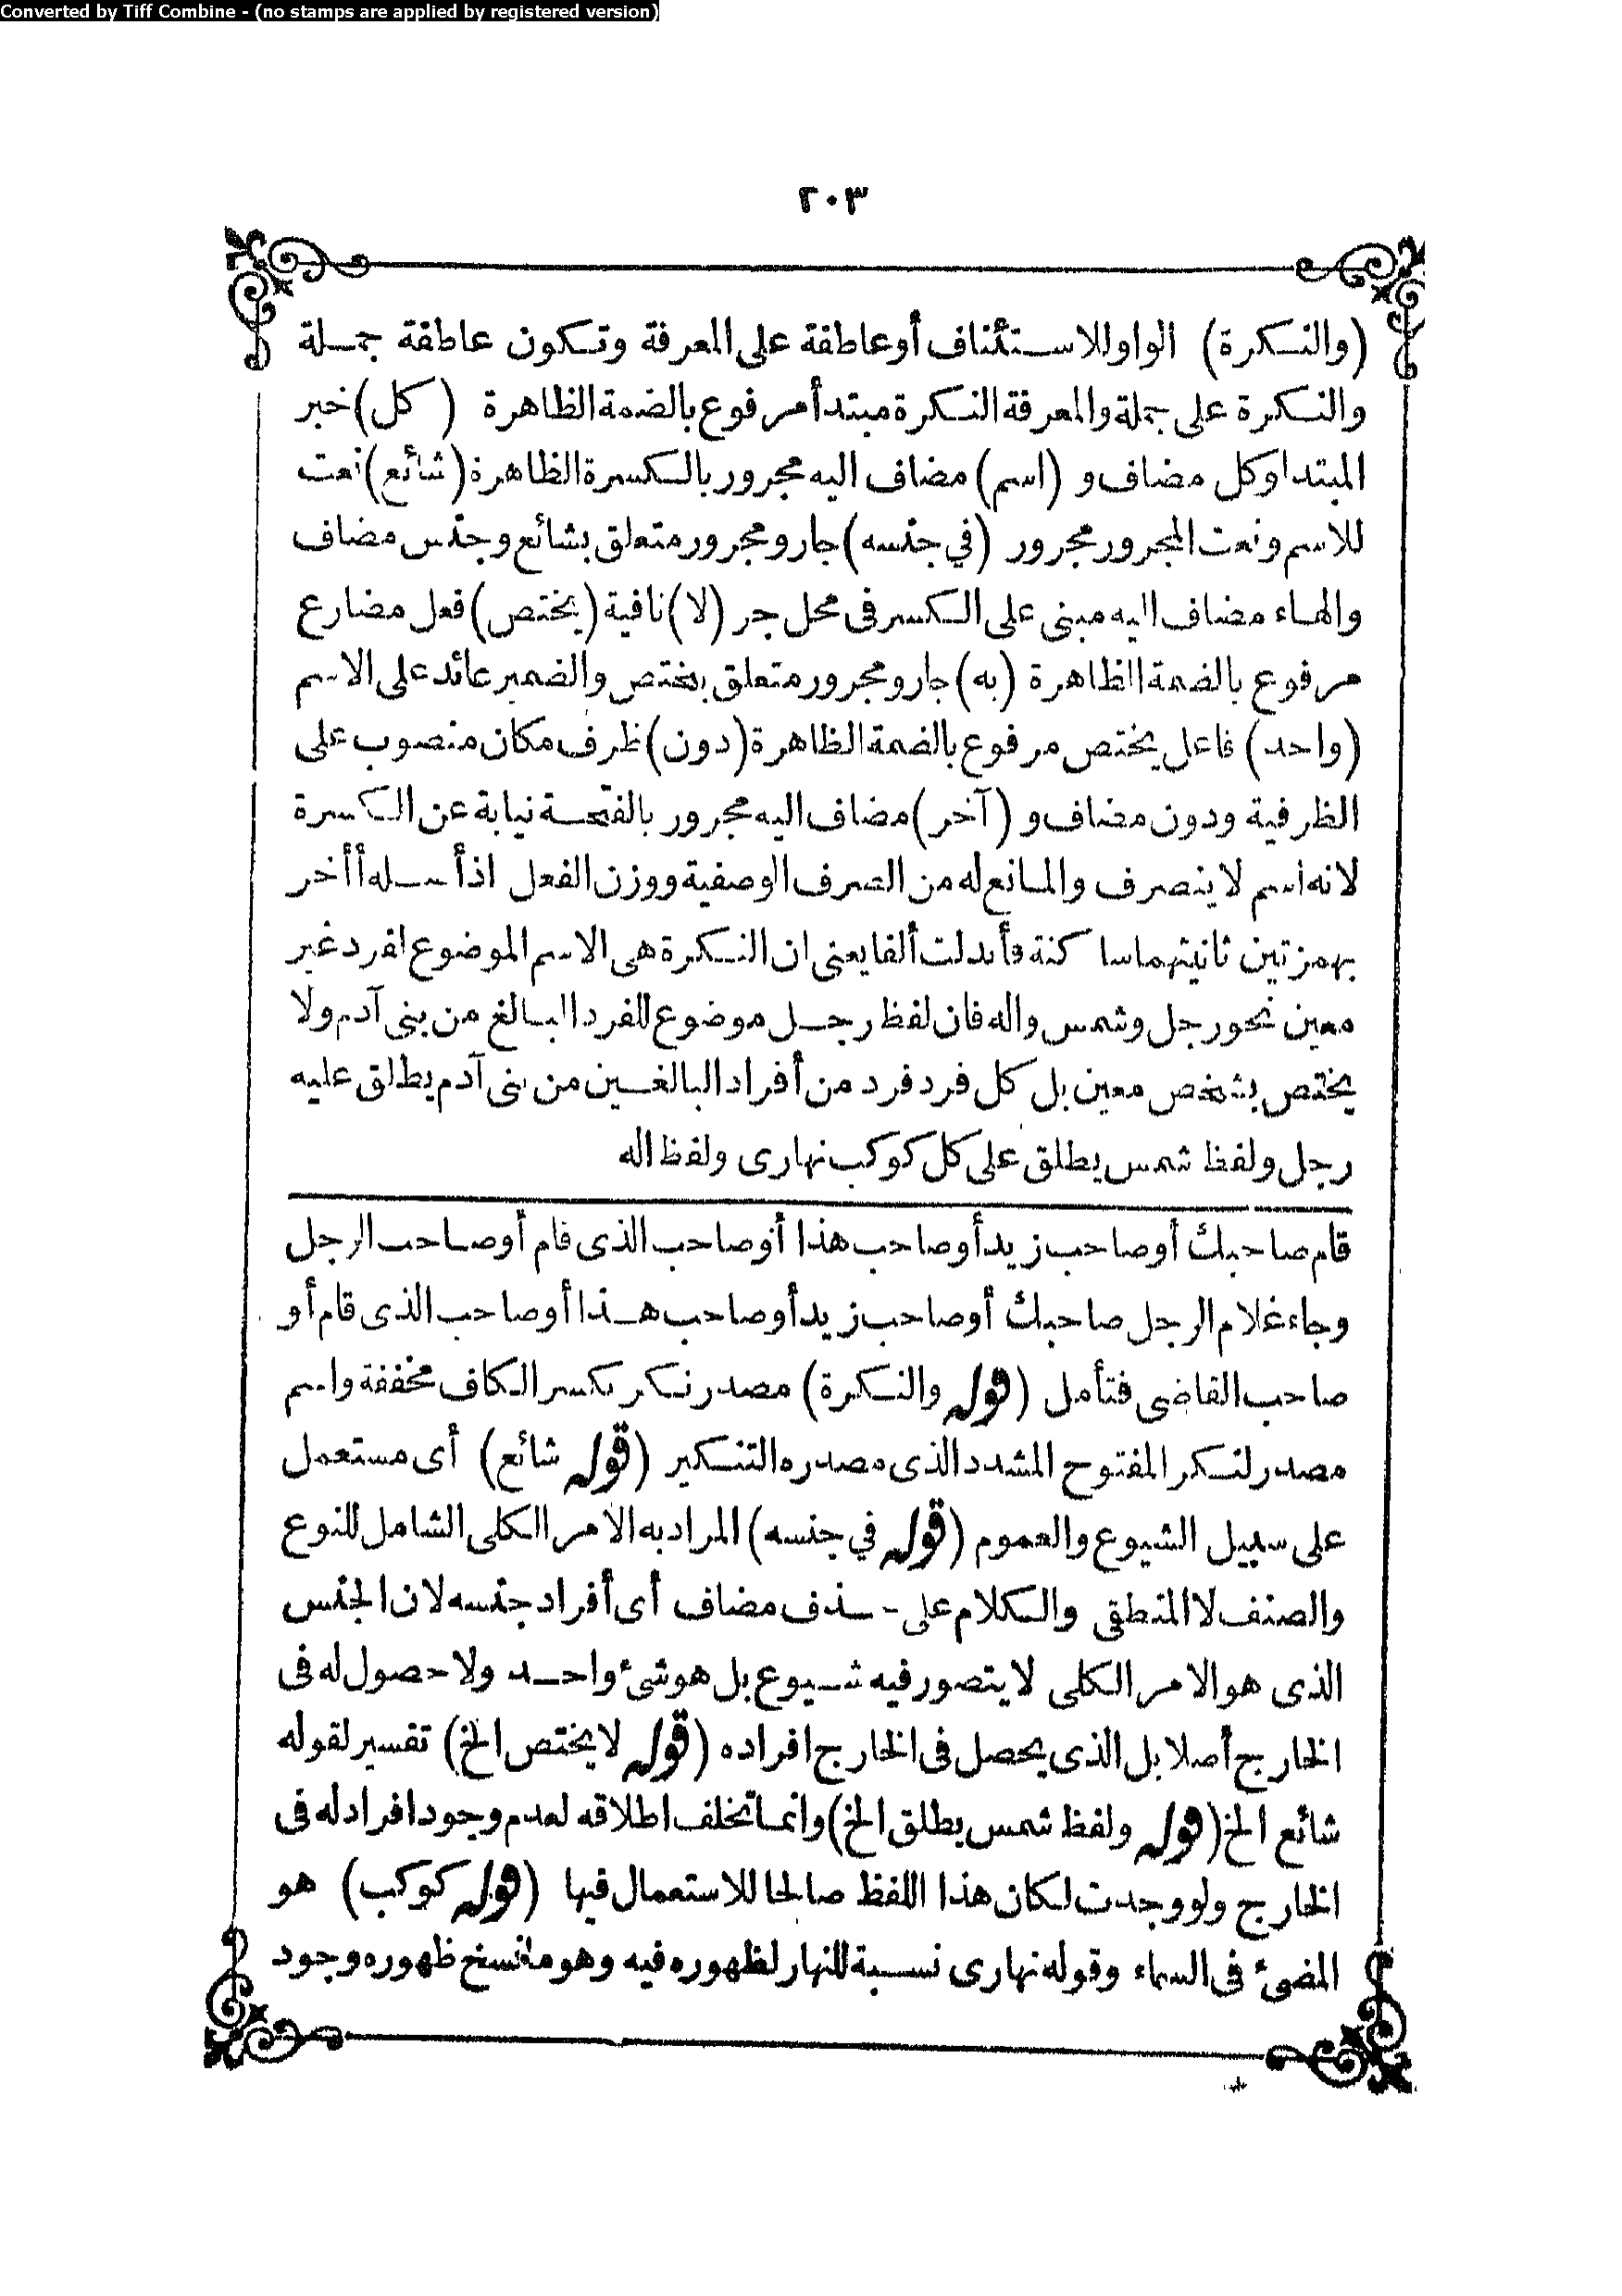 Converted by Tiff Combine - (no stamps are applied by registered version)
٢٠٣
(والنكرة) الواو للاستئناف أو عاطفة على المعرفة وتكون عاطفة جملة
والنكرة على جملة والمعرفة النكرة مبتدأ مرفوع بالضمة الظاهرة (كل) خبر
المبتدا وكل مضاف و (اسم) مضاف اليه مجرور بالكسرة الظاهرة (شائع) نعت
للاسم ونعت المجرور مجرور (في جنسه) جار ومجرور متعلق بشائع وجنس مضاف
والهاء مضاف اليه مبنى على الكسر فى محل جر (لا) نافية (يختص) فعل مضارع
مرفوع بالضمة الظاهرة (به) جار ومجرور متعلق بيختص والضمير عائد على الاسم
(واحد) فاعل يختص مرفوع بالضمة الظاهرة (دون) ظرف مكان منصوب على
الظرفية ودون مضاف و (آخر) مضاف اليه مجرور بالفتحة نيابة عن الكسرة
لانه اسم لا ينصرف والمانع له من الصرف الوصفية ووزن الفعل اذ أصله أأخر
بهمزتين ثانيتهما ساكنة فأبدلت ألفا يعنى ان النكرة هى الاسم الموضوع لفرد غير
معين نحو رجل وشمس واله فان لفظ رجل موضوع للفرد البالغ من بنى آدم ولا
يختص بشخص معين بل كل فرد فرد من أفراد البالغين من بنى آدم يطلق عليه
رجل ولفظ شمس يطلق على كل كوكب نهارى ولفظ اله
قام صاحبك أو صاحب زيد أو صاحب هذا أو صاحب الذى قام أو صاحب الرجل
وجاء غلام الرجل صاحبك أو صاحب زيد أو صاحب هذا أو صاحب الذى قام أو
صاحب القاضى فتأمل (قوله والنكرة) مصدر نكر بكسر الكاف مخففة واسم
مصدر لنكر المفتوح المشدد الذى مصدره التنكير (قوله شائع) أى مستعمل
على سبيل الشيوع والعموم (قوله في جنسه) المراد به الامر الكلى الشامل للنوع
والصنف لا المنطقى والكلام على حذف مضاف أى أفراد جنسه لان الجنس
الذى هو الامر الكلى لا يتصور فيه شيوع بل هو شئ واحد ولا حصول له فى
الخارج أصلا بل الذى يحصل فى الخارج افراده (قوله لا يختص الخ) تفسير لقوله
شائع الخ (قوله ولفظ شمس يطلق الخ) وانما تخلف اطلاقه لعدم وجود افراد له فى
الخارج ولو وجدت لكان هذا اللفظ صالحا للاستعمال فيها (قوله كوكب) هو
المضئ فى السماء وقوله نهارى نسبة للنهار لظهوره فيه وهو ما نسخ ظهوره وجود